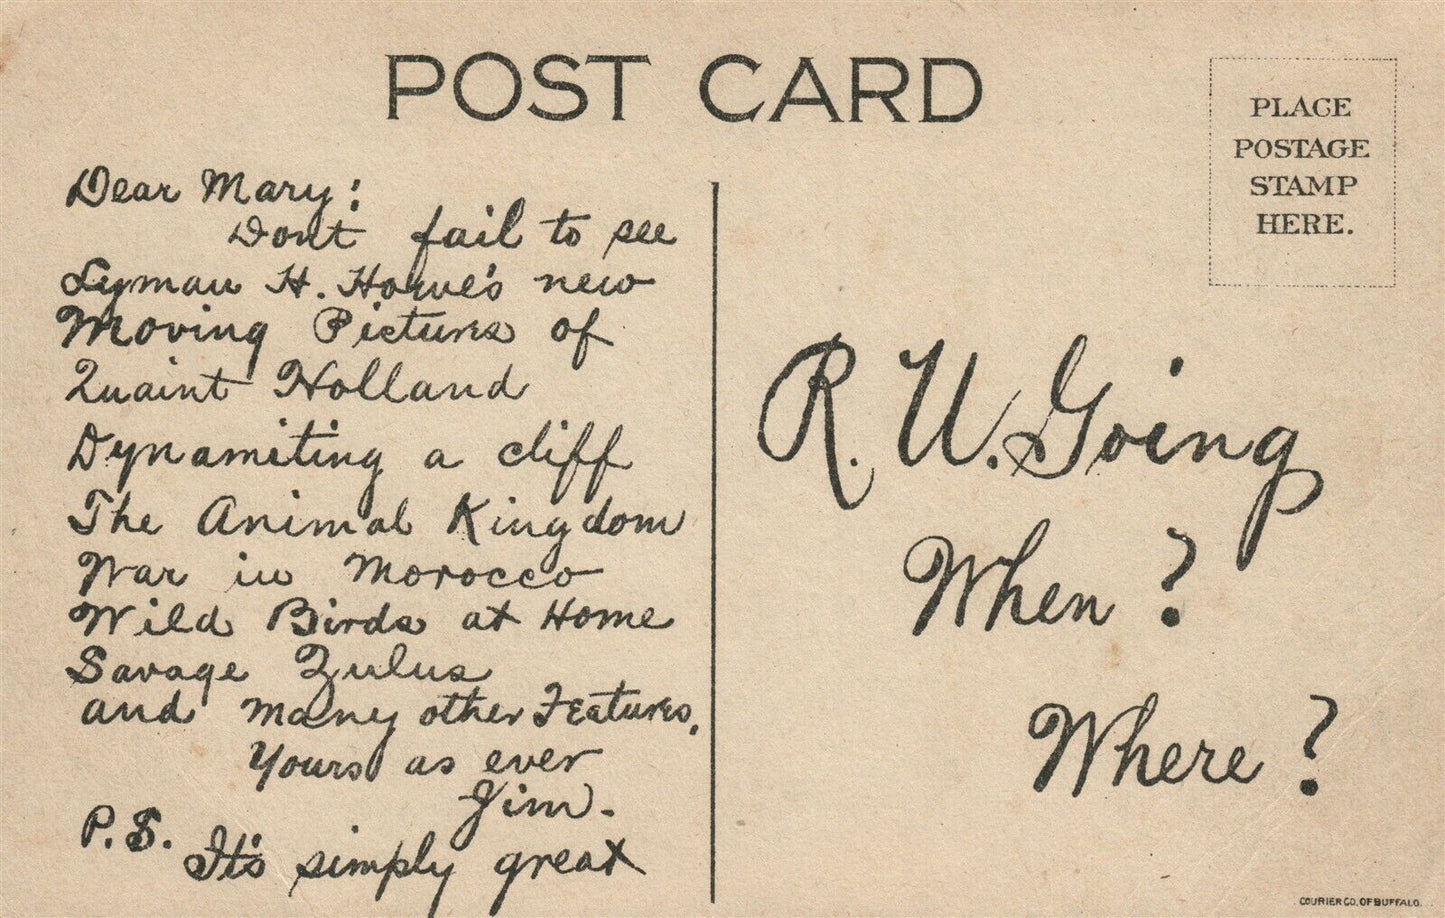 POST CARD
PLACE
POSTAGE
STAMP
HERE.
Dear Mary:
Dont fail to see
Lyman H. Howe's new
Moving Pictures of
Quaint Holland
Dynamiting a cliff
The Animal Kingdom
War in Morocco
Wild Birds at Home
Savage Zulus
and many other Features,
Yours as ever
Jim.
P.S. It's simply great
R. U. Going
When?
Where?
COURIER CO. OF BUFFALO.